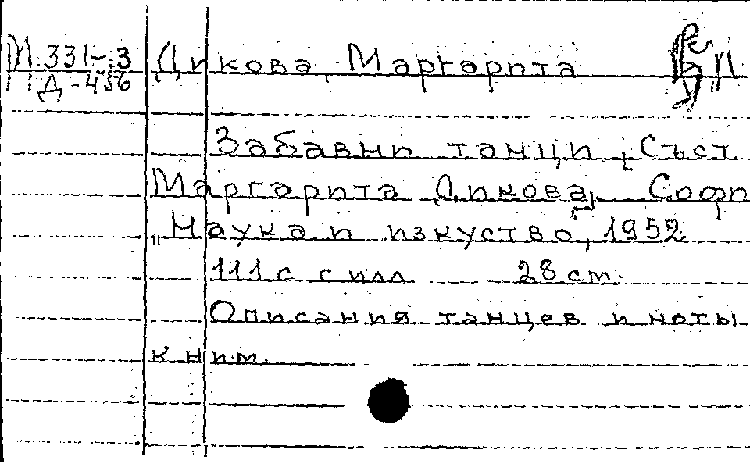 М 331-3 Дикова, Маргарита
Д-456
Забавни танци, Съст
Маргарита Дикова, Софи
"Наука и изкуство", 1952.
111 с с илл 28 cm.
Описания танцев и ноты
к ним.